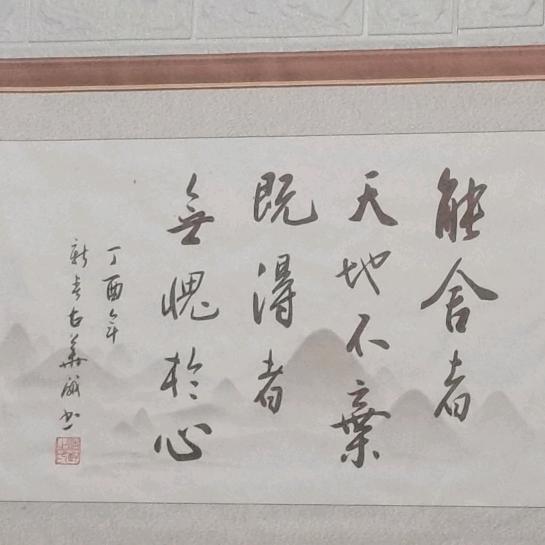 能舍者
天地不棄
既得者
無愧於心
丁酉年
新春古華
書